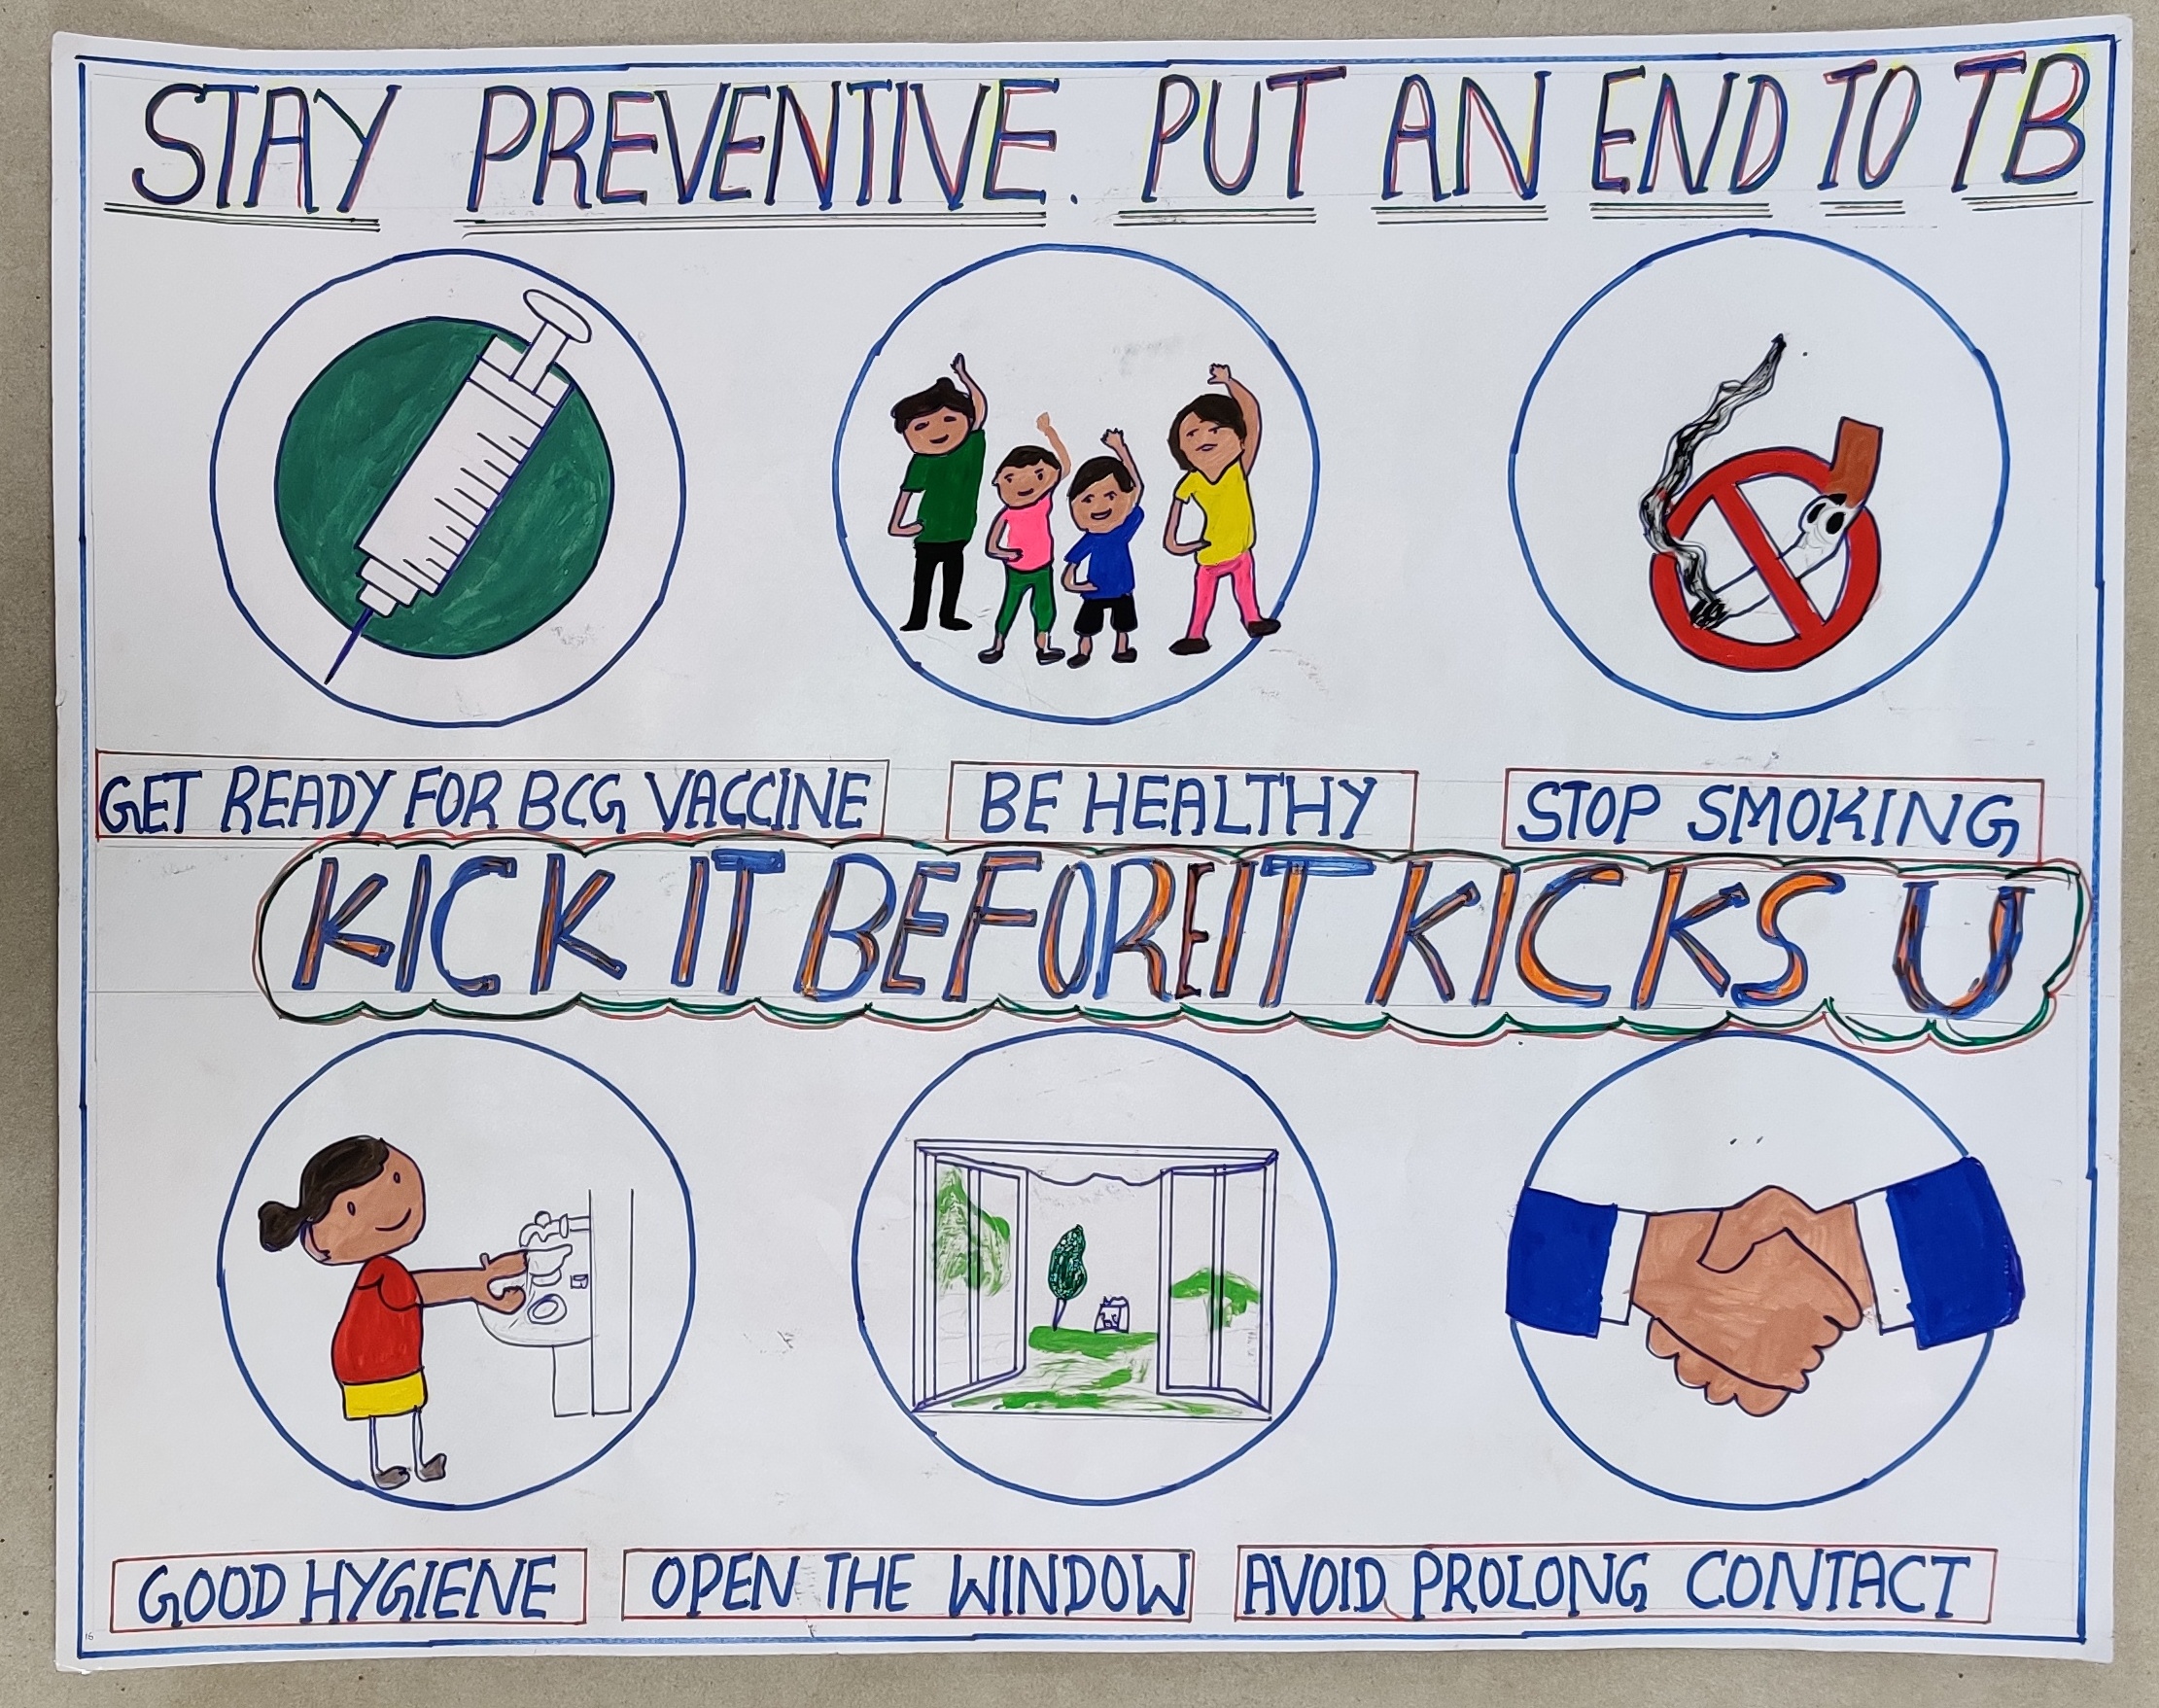 STAY PREVENTIVE. PUT AN END TO TB
GET READY FOR BCG VACCINE
BE HEALTHY
STOP SMOKING
KICK IT BEFORE IT KICKS U
GOOD HYGIENE
OPEN THE WINDOW
AVOID PROLONG CONTACT
16